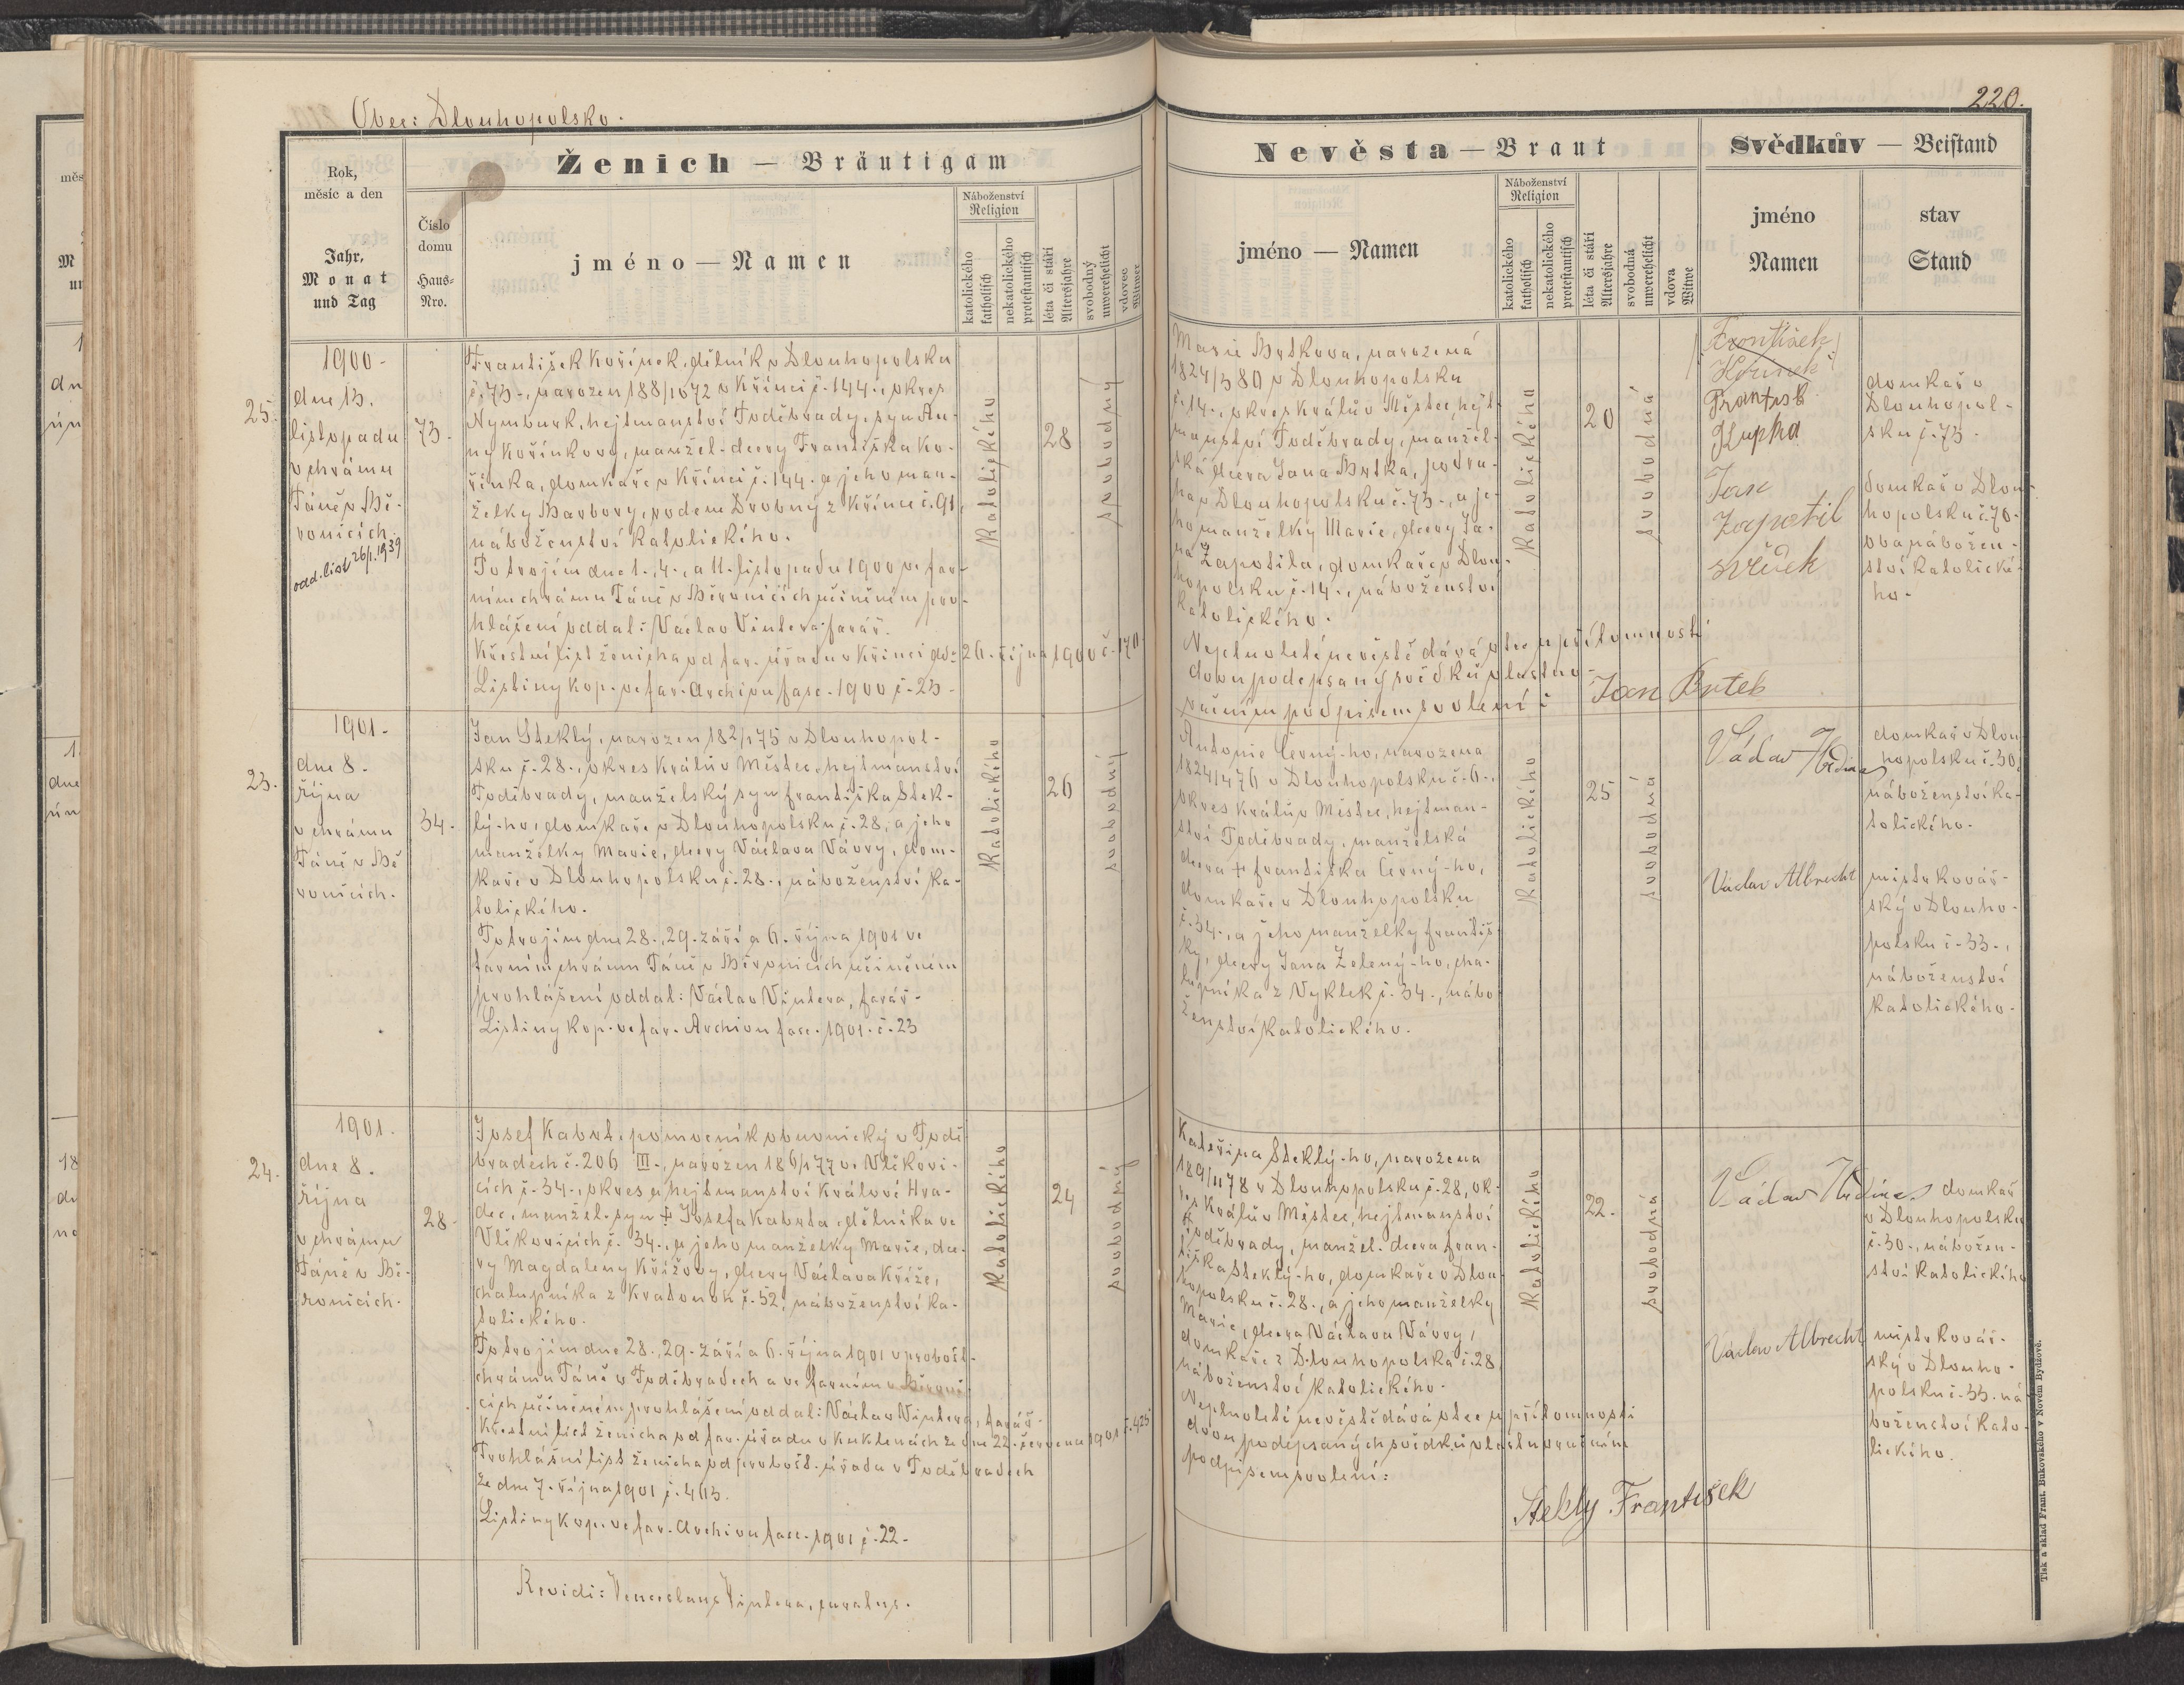 Obec: Dlouhopolsko.
220.
Ženich — Bräutigam
Rok,
měsíc a den
Jahr,
Monat
und Tag
Číslo
domu
Haus-
Nro.
jméno — Namen
Náboženství
Religion
katolického
katholisch
nekatolického
protestantisch
léta či stáří
Altersjahre
svobodný
unverehelicht
vdovec
Witwer
Nevěsta — Braut
jméno — Namen
Náboženství
Religion
katolického
katholisch
nekatolického
protestantisch
léta či stáří
Altersjahre
svobodná
unverehelicht
vdova
Witwe
Svědkův — Beistand
jméno
Namen
stav
Stand
25.
1900.
dne 13.
listopadu
v chrámu
Páně v Mě-
ronicích.
odd. list 26/1. 1939
73.
František Kořínek, dělník v Dlouhopolsku
č. 73., narozen 188/1072 v Křinci č. 144., okres
Nymburk, hejtmanství Poděbrady, syn An-
ny Kořínkovy, manžel. dcery Františka Ko-
řínka, domkáře v Křinci č. 144. a jeho man-
želky Barbory, rodem Drobný z Křince č. 91,
náboženství katolického.
Po trojím dne 1., 4., a 11. listopadu 1900 ve far-
ním chrámu Páně v Měronicích učiněném pro-
hlášení oddal: Václav Vintera farář.
Křestní list ženicha od far. úřadu v Křinci dto 26. října 1900 č. 170.
Listiny kop. ve far. Archivu fasc. 1900 č. 23.
katolického
28
svobodný
1824/380 v Dlouhopolsku
č. 14., okres Králův Městec, hejt-
manství Poděbrady, manžel-
ská dcera Jana Brtka, podru-
ha v Dlouhopolsku č. 73., a je-
ho manželky Marie, dcery Ja-
na Zapotila, domkáře v Dlou-
hopolsku č. 14., náboženství
katolického.
Nepnoleté nevěstě dává otec u přítomnosti
dvou podepsaných svědků vlastno-
ručním podpisem svolení:
Jan Brtek
katolického
20
svobodná
František
Kupka
Jan
Zapotil
svědek
domkář v
Dlouhopol-
sku č. 73.
domkář v Dlou-
hopolsku č. 70.
oba nábožen-
ství katolické-
ho.
23.
1901.
dne 8.
října
v chrámu
Páně v Mě-
ronicích.
34.
Jan Steklý, narozen 182/175 v Dlouhopol-
sku č. 28., okres Králův Městec, hejtmanství
Poděbrady, manželský syn Františka Stek-
lý-ho, domkáře v Dlouhopolsku č. 28, a jeho
manželky Marie, dcery Václava Vávry, dom-
káře v Dlouhopolsku č. 28., náboženství ka-
tolického.
Po trojím dne 28., 29. září a 6. října 1901 ve
farním chrámu Páně v Měronicích učiněném
prohlášení oddal: Václav Vintera, farář.
Listiny kop. ve far. Archivu fasc. 1901. č. 23
katolického
26
svobodný
Antonie Černý-ho, narozena
1824/476 v Dlouhopolsku č. 6.,
okres Králův Městec, hejtman-
ství Poděbrady, manželská
dcera + Františka Černý-ho,
domkáře v Dlouhopolsku
č. 34., a jeho manželky Františ-
ky, dcery Jana Zelený-ho, cha-
lupníka z Vyklek č. 34., nábo-
ženství katolického.
katolického
25
svobodná
Václav
domkář v Dlou-
hopolsku č. 30,
náboženství ka-
tolického.
Václav Albrecht
mistr kovář-
ský v Dlouho-
polsku č. 33.,
náboženství
katolického.
24.
1901.
dne 8.
října
v chrámu
Páně v Mě-
ronicích.
28.
Josef Kabrt, pomocník obuvnický v Podě-
bradech č. 206 III., narozen 186/177 ve Vlkovi-
cích č. 34., okres a hejtmanství Králové Hra-
dec, manžel. syn + Josefa Kabrta, dělníka ve
Vlkovicích č. 34., a jeho manželky Marie, dce-
ry Magdaleny Křížovy, dcery Václava Kříže,
chalupníka z Kratonoh č. 52, náboženství ka-
tolického.
Po trojím dne 28., 29. září a 6. října 1901 v probošt.
chrámu Páně v Poděbradech a ve farním v Měroni-
cích učiněném prohlášení oddal: Václav Vintera, farář.
Křestní list ženicha od far. úřadu v Kuklenách ze dne 22. června 1901 č. 425
Prohlášní list ženicha od probošt. úřadu v Poděbradech
ze dne 7. října 1901 č. 463.
Listiny kop. ve far. Archivu fasc. 1901 č. 22.
katolického
24
svobodný
Kateřina Steklý-ho, narozena
189/1178 v Dlouhopolsku č. 28, ok-
res Králův Městec, hejtmanství
Poděbrady, manžel. dcera Fran-
tiška Steklý-ho, domkáře v Dlou-
hopolsku č. 28., a jeho manželky
Marie, dcera Václava Vávry,
domkáře z Dlouhopolska č. 28
náboženství katolického.
Nepnoleté nevěstě dává otec u přítomnosti
dvou podepsaných svědků vlastnoručním
podpisem svolení:
Stekly František
katolického
22.
svobodná
Václav
domkář
v Dlouhopolsku
č. 30., nábožen-
ství katolického
Václav Albrecht
mistr kovář-
ský v Dlouho-
polsku č. 33. ná-
boženství kato-
lického.
Revidi: Venceslaus Vintera, curatus.
Tisk a sklad Frant. Bukovského v Novém Bydžově.